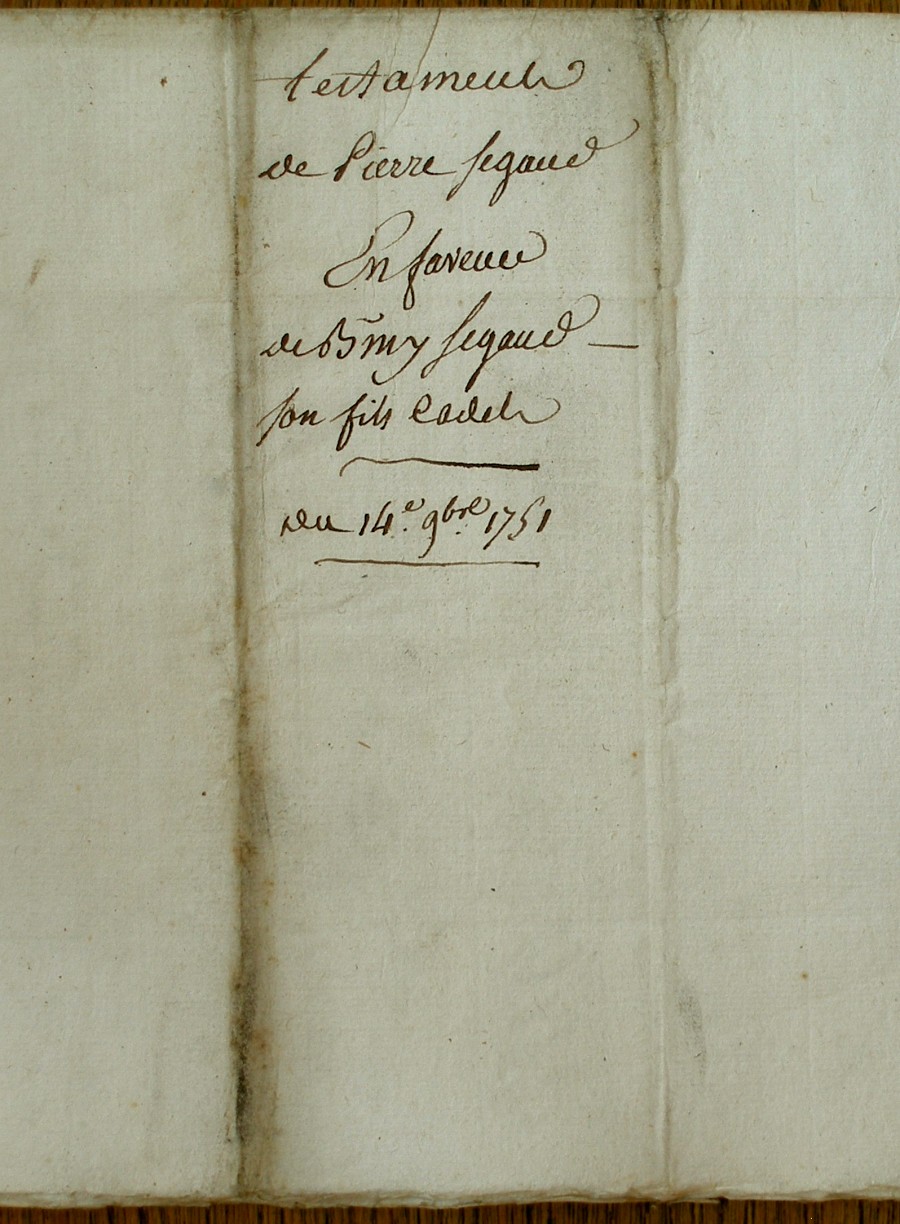 testament
de Pierre segaud
En faveur
de Bmy segaud —
son fils Cadet
du 14e. 9bre. 1751